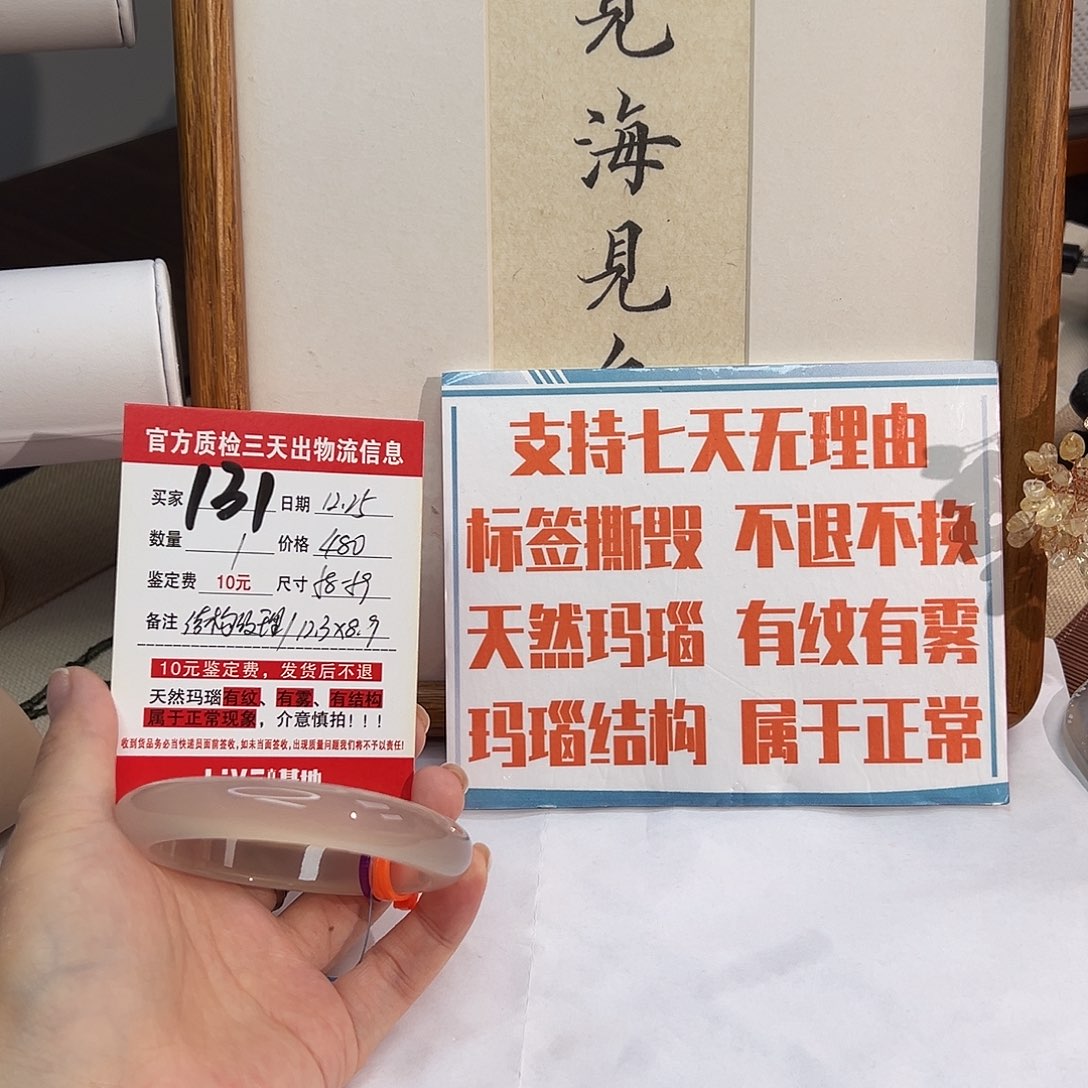 見
海
見
官方质检三天出物流信息
买家 131 日期 12.25
数量 1 价格 480
鉴定费 10元 尺寸 58.89
备注 结构纹理/12.3x8.9
10元鉴定费，发货后不退
天然玛瑙有纹、有雾、有结构
属于正常现象，介意慎拍！！！
收到货品务必当快递员面前签收，如未当面签收，出现质量问题我们将不予以责任！
基地
支持七天无理由
标签撕毁 不退不换
天然玛瑙 有纹有雾
玛瑙结构 属于正常